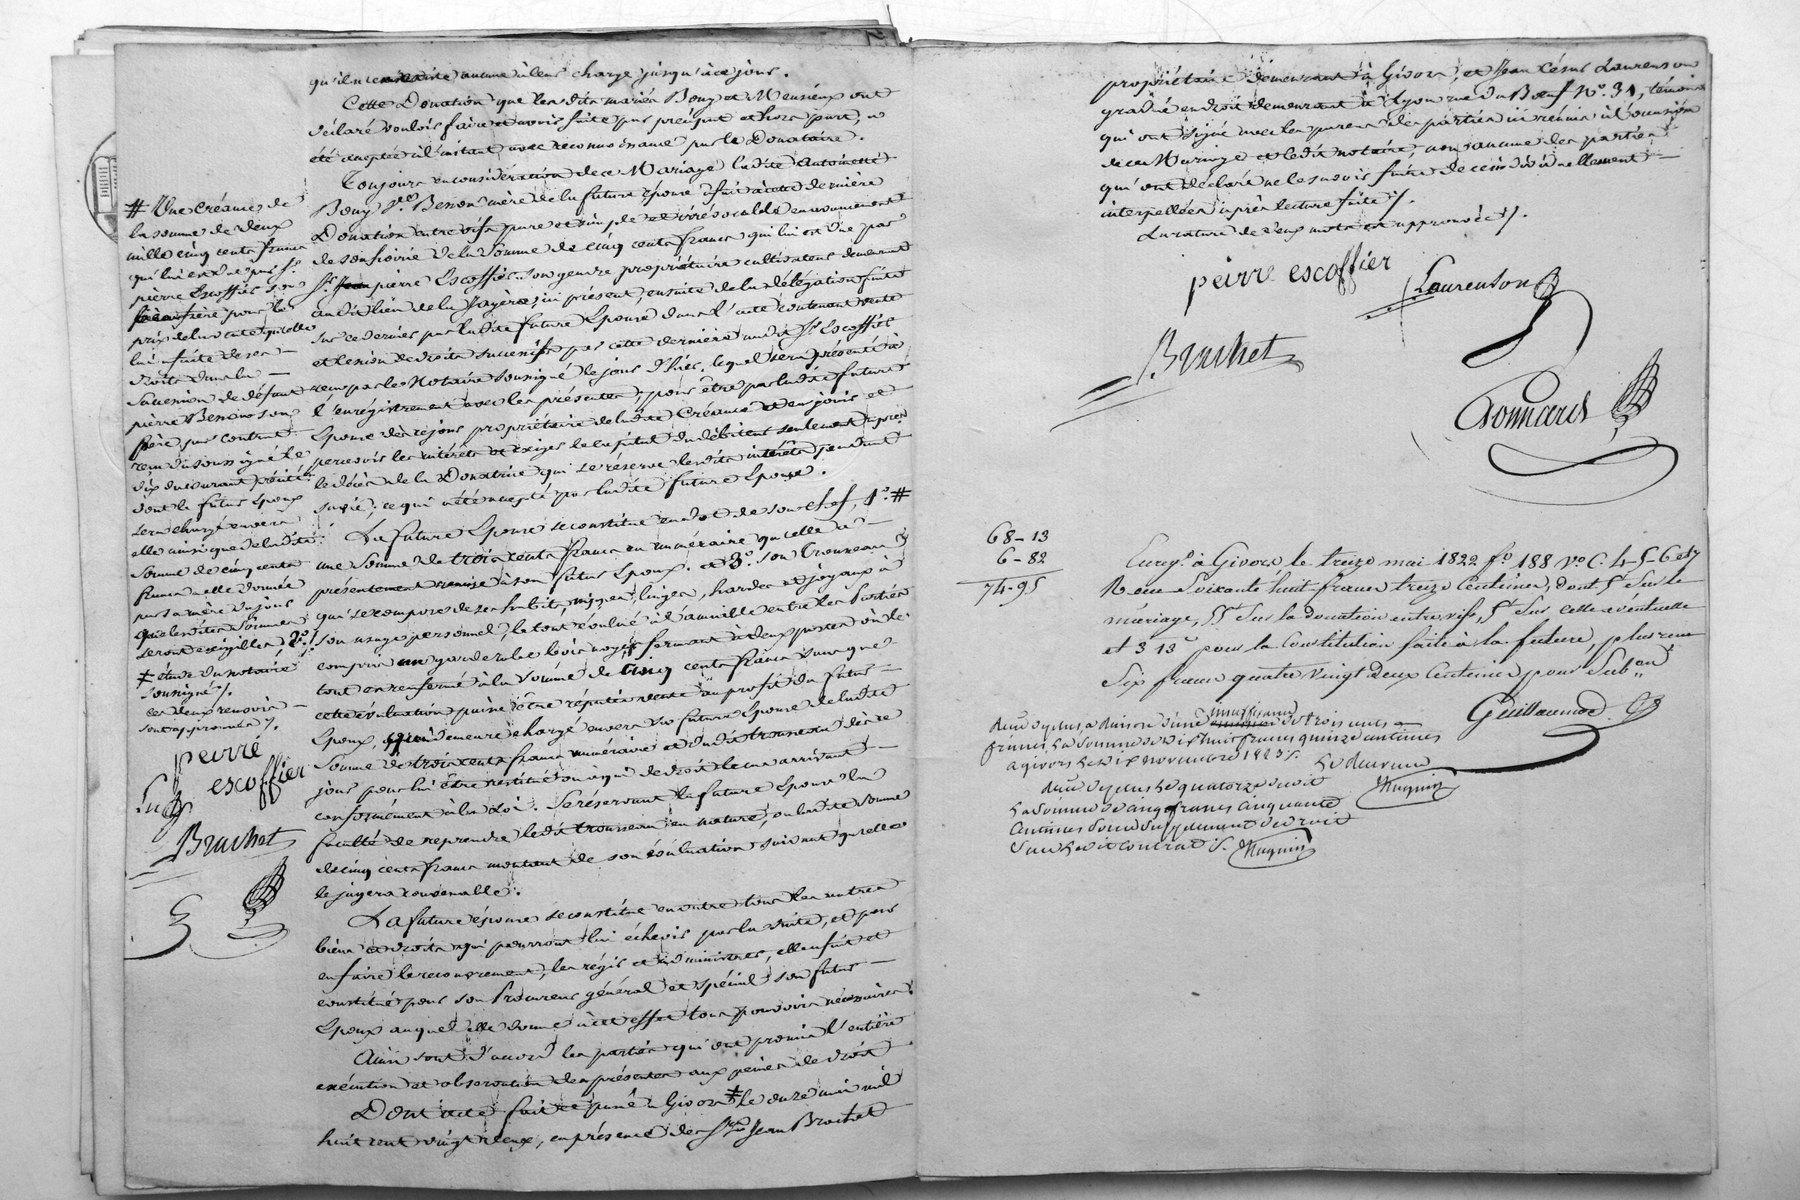 qu'il n'en existe aucune à leur charge jusqu'à ce jour.
Cette Donation que les dits mariés Bouy et Meusieux ont
déclaré vouloir faire et avoir faite par préciput et hors part, a
été acceptée à l'instant avec reconnoissance par le Donataire.
Toujours en considération de ce Mariage ladite Antoinette
Bouy Ve Besson mère de la future Epouse a fait à cette dernière
Donation entre vifs pure et simple et irrévocable en avancement
de son hoirie de la somme de cinq cents francs qui lui est due par
Sr pierre Escoffier son gendre propriétaire cultivateur demeurant
audit lieu de la, ici présent, ensuite de la délégation faite
sur ce dernier par ladite future Epouse dans l'acte contenant vente
et cession de droits successifs par cette dernière audit Sr Escoffier
reçu par le Notaire soussigné le jour d'hier, lequel sera présenté à
l'enrégistrement avec les présentes, pour être par ladite future
Epouse dès ce jour propriétaire de ladite Créance et en jouir et
percevoir les intérêts et exiger le capital du débiteur seulement après
le décès de la Donatrice qui se réserve lesdits intérêts pendant
sa vie; ce qui a été accepté par ladite future Epouse.
La future Epouse se constitue en dot de son chef, 1º #
une somme de trois cents francs en numéraire qu'elle a
présentement remise à son futur Epoux. et 3º son trousseau
qui se compose de ses habits, linges, hardes et joyaux à
son usage personnel, le tout évalué à l'amiable entre les Parties
compris un garderobe bois noyer fermant à deux portes
tout en renfermé à la somme de cinq cents francs sans que
cette évaluation puisse être réputée vente au profit du futur
Epoux, qui demeure chargé envers sa future Epouse de ladite
somme de trois cents francs numéraire et dudit trousseau dès ce
jour pour lui être restitué ou à qui de droit le cas arrivant
conformément à la Loi. Se réservant la future Epouse la
faculté de reprendre ledit trousseau en nature, ou ladite somme
de cinq cents francs montant de son évaluation suivant qu'elle
le jugera convenable.
La future épouse se constitue en outre tous les autres
biens et droits qui pourront lui échevir par la suite, et pour
en faire le recouvrement, les régir et administrer, elle a fait et
constitué pour son Procureur général et spécial son futur
Epoux auquel elle donne à cet effet tous pouvoirs nécessaires.
Ainsi sont d'accord les parties qui ont promis l'entière
exécution et observation des présentes aux peines de droit
Dont acte fait et passé à Givors ‡ le onze mai mil
huit cent vingt deux, en présence des Srs Jean Brachet
# Une Créance de
la somme de deux
mille cinq cents francs
qui lui est due par Sr
pierre Escoffier son
beaufrère pour le
prix de la vente qu'elle
lui a faite de ses
droits dans la
succession de défunt
pierre Besson son
père, par contrat
reçu du soussigné le
dix du courant
dont le futur Epoux
sera chargé envers
elle ainsi que de ladite
somme de cinq cents
francs à elle donnée
par sa mère du jour
que lesdites sommes
seront exigibles, 2º
‡ étude du notaire
soussigné
ces deux renvois
sont approuvés
peirre
escoffier
Brachet
propriétaire demeurant à Givors, et Jean César Laurenson
gradué en droit demeurant à Lyon rue du Bœuf Nº. 31, témoins
qui ont signé avec les parens des parties ici réunis à l'occasion
de ce Mariage et ledit notaire, non aucune des parties
qui ont déclaré ne le savoir faire de ce individuellement
interpellées après lecture faite
La rature de deux mots est approuvée
peirre escoffier
Laurenson
Brachet
Donnaret
68-13
6-82
74-95
Enregé. à Givors le treize mai 1822 fo 188 Vo C. 4-5-6 et 7
Reçu Soixante huit francs treize Centimes, dont 5f Sur le
mariage, Sur la donation entre vifs, 5f Sur celle éventuelle
et 3 13c pour la Constitution faite à la future, plus reçu
Six francs quatre vingt deux Centimes pour Subon
Guillaumod
Reçu de plus à raison d'une insuffisance de trois cents
francs, La Somme de dix huit francs quinze centimes
a givors Le dix novembre 1823
Le Receveur
Reçu de plus le quatorze dudit
La Somme de cinq francs cinquante
Centimes pour Supplément de droit
Sur Ledit contrat